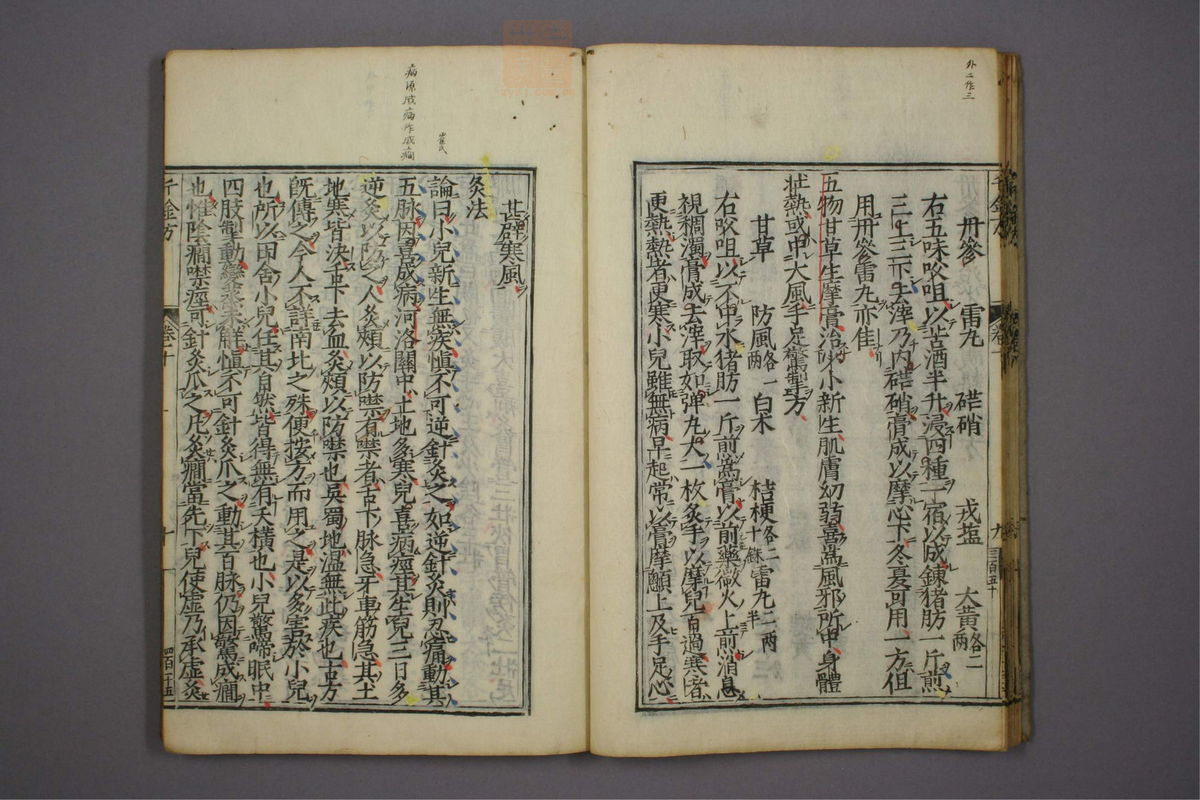 外二作三
丹參 雷丸 硭硝 戎塩 大黃各二兩
右五味㕮咀以苦酒半升浸四種一宿以成鍊猪肪一斤煎
三上三下去滓乃內硭硝膏成以摩心下冬夏可用一方但
用丹參雷丸亦佳
五物甘草生摩膏治少小新生肌膚幼弱喜為風邪所中身體
壯熱或中大風手足驚掣方
甘草 防風各一兩 白朮 桔梗各二十銖 雷丸二兩半
右㕮咀以不中水猪肪一斤煎為膏以煎藥微火上煎消息
視稠濁膏成去滓取如弹丸大一枚炙手以摩兒百過寒者
更熱熱者更寒小兒雖無病早起常以膏摩顖上及手足心
千金方 卷十 九 三百五十
甚辟寒風
灸法
論曰小兒新生無疾慎不可逆針灸之如逆針灸則忍痛動其
五脉因喜成病河洛關中土地多寒兒喜病痙其生兒三日多
逆灸以防之人灸頰以防噤有噤者舌下脉急牙車筋急其土
地寒皆決舌下去血灸頰以防噤也吳蜀地溫無此疾也古方
既傳之今人不詳南北之殊便按方而用之是以多害於小兒
也所以田舍小兒任其自然皆得無有夭橫也小兒驚啼眠中
四肢掣動變蒸未解慎不可針灸爪之動其百脉仍因驚成癎
也惟陰癎噤痙可針灸爪之凡灸癎當先下兒使虛乃承虛灸
千金方 卷十 十 四百二十五
崔氏
病源成病作成癎